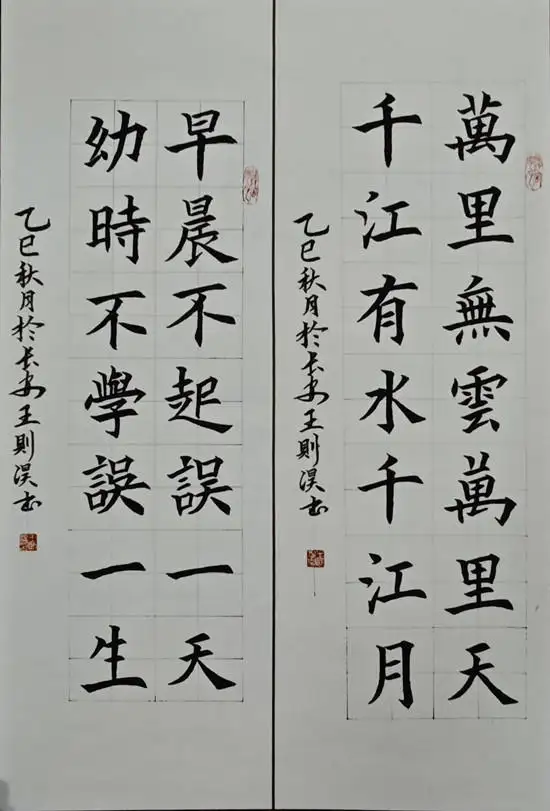 萬里無雲萬里天
千江有水千江月
乙巳秋月於長安王則淏書
早晨不起誤一天
幼時不學誤一生
乙巳秋月於長安王則淏書